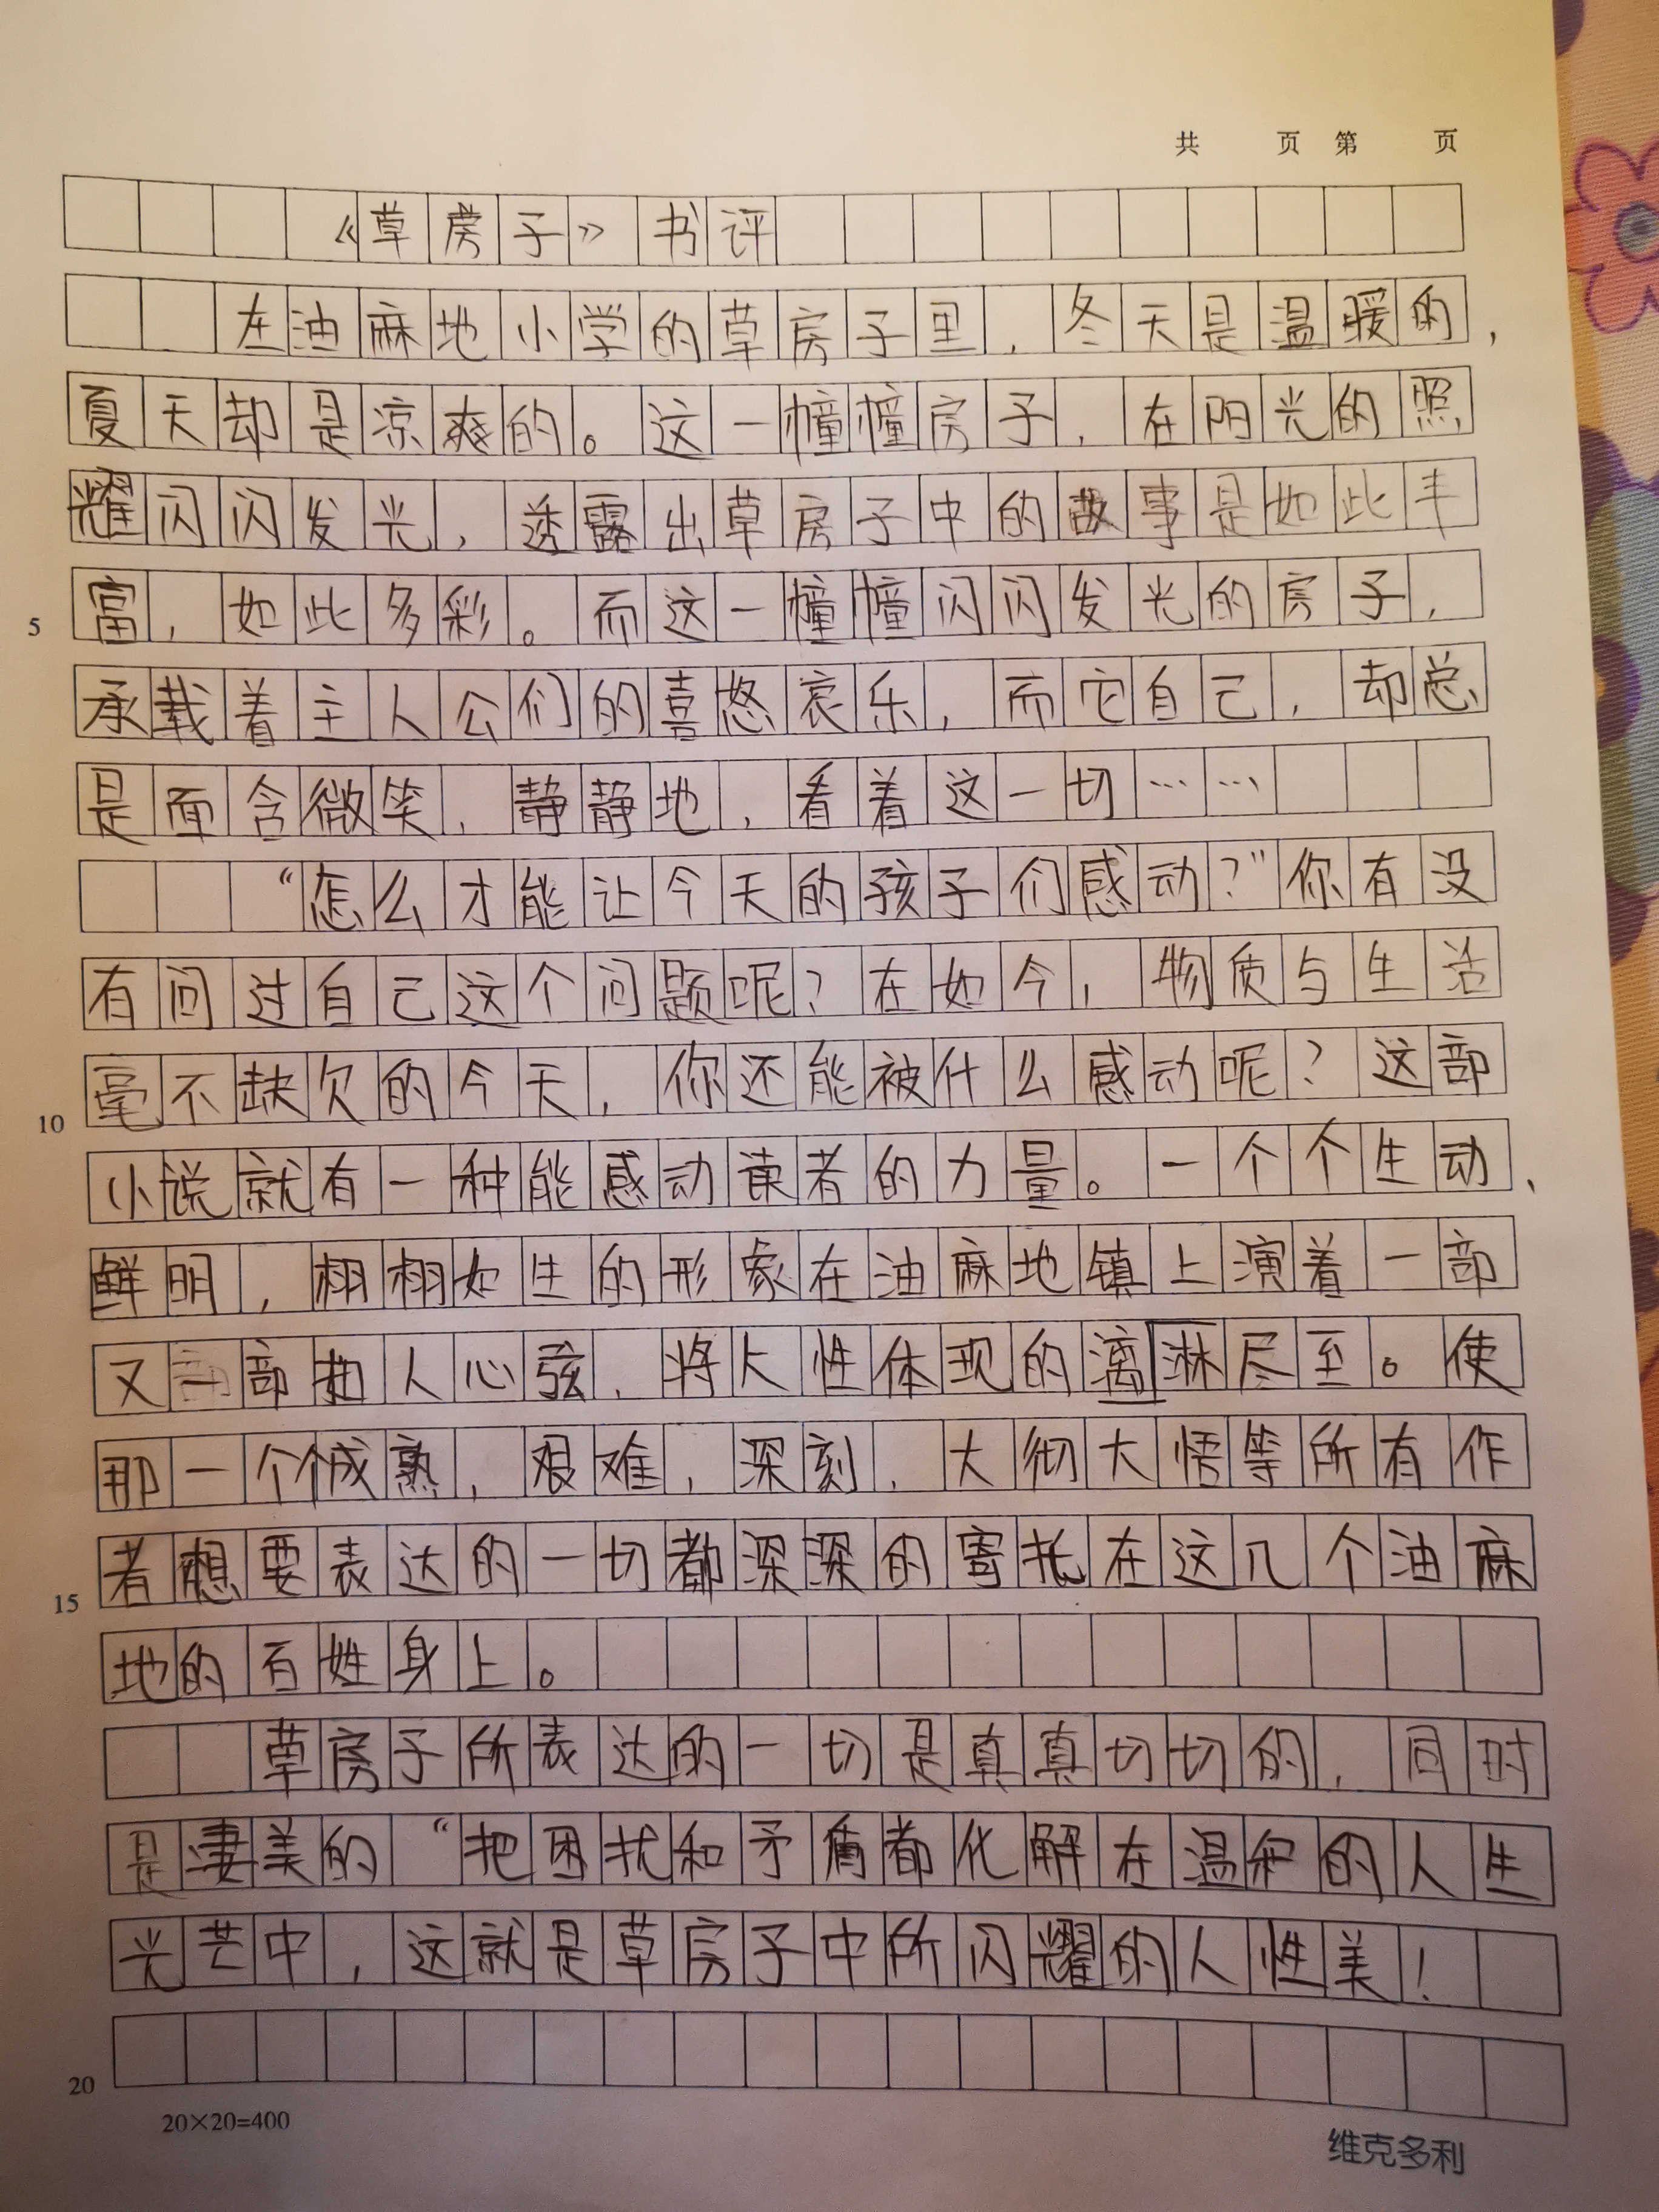 共 页 第 页
《草房子》书评
在油麻地小学的草房子里，冬天是温暖的，
夏天却是凉爽的。这一幢幢房子，在阳光的照
耀闪闪发光，透露出草房子中的故事是如此丰
5 富，如此多彩。而这一幢幢闪闪发光的房子，
承载着主人公们的喜怒哀乐，而它自己，却总
是面含微笑，静静地，看着这一切……
“怎么才能让今天的孩子们感动？”你有没
有问过自己这个问题呢？在如今，物质与生活
10 毫不缺欠的今天，你还能被什么感动呢？这部
小说就有一种能感动读者的力量。一个个生动、
鲜明，栩栩如生的形象在油麻地镇上演着一部
又一部扣人心弦，将人性体现的漓淋尽至。使
那一个个成熟，艰难，深刻，大彻大悟等所有作
15 者想要表达的一切都深深的寄托在这几个油麻
地的百姓身上。
草房子所表达的一切是真真切切的，同时
是凄美的“把困扰和矛盾都化解在温和的人生
光芒中，这就是草房子中所闪耀的人性美！
20
20×20=400
维克多利